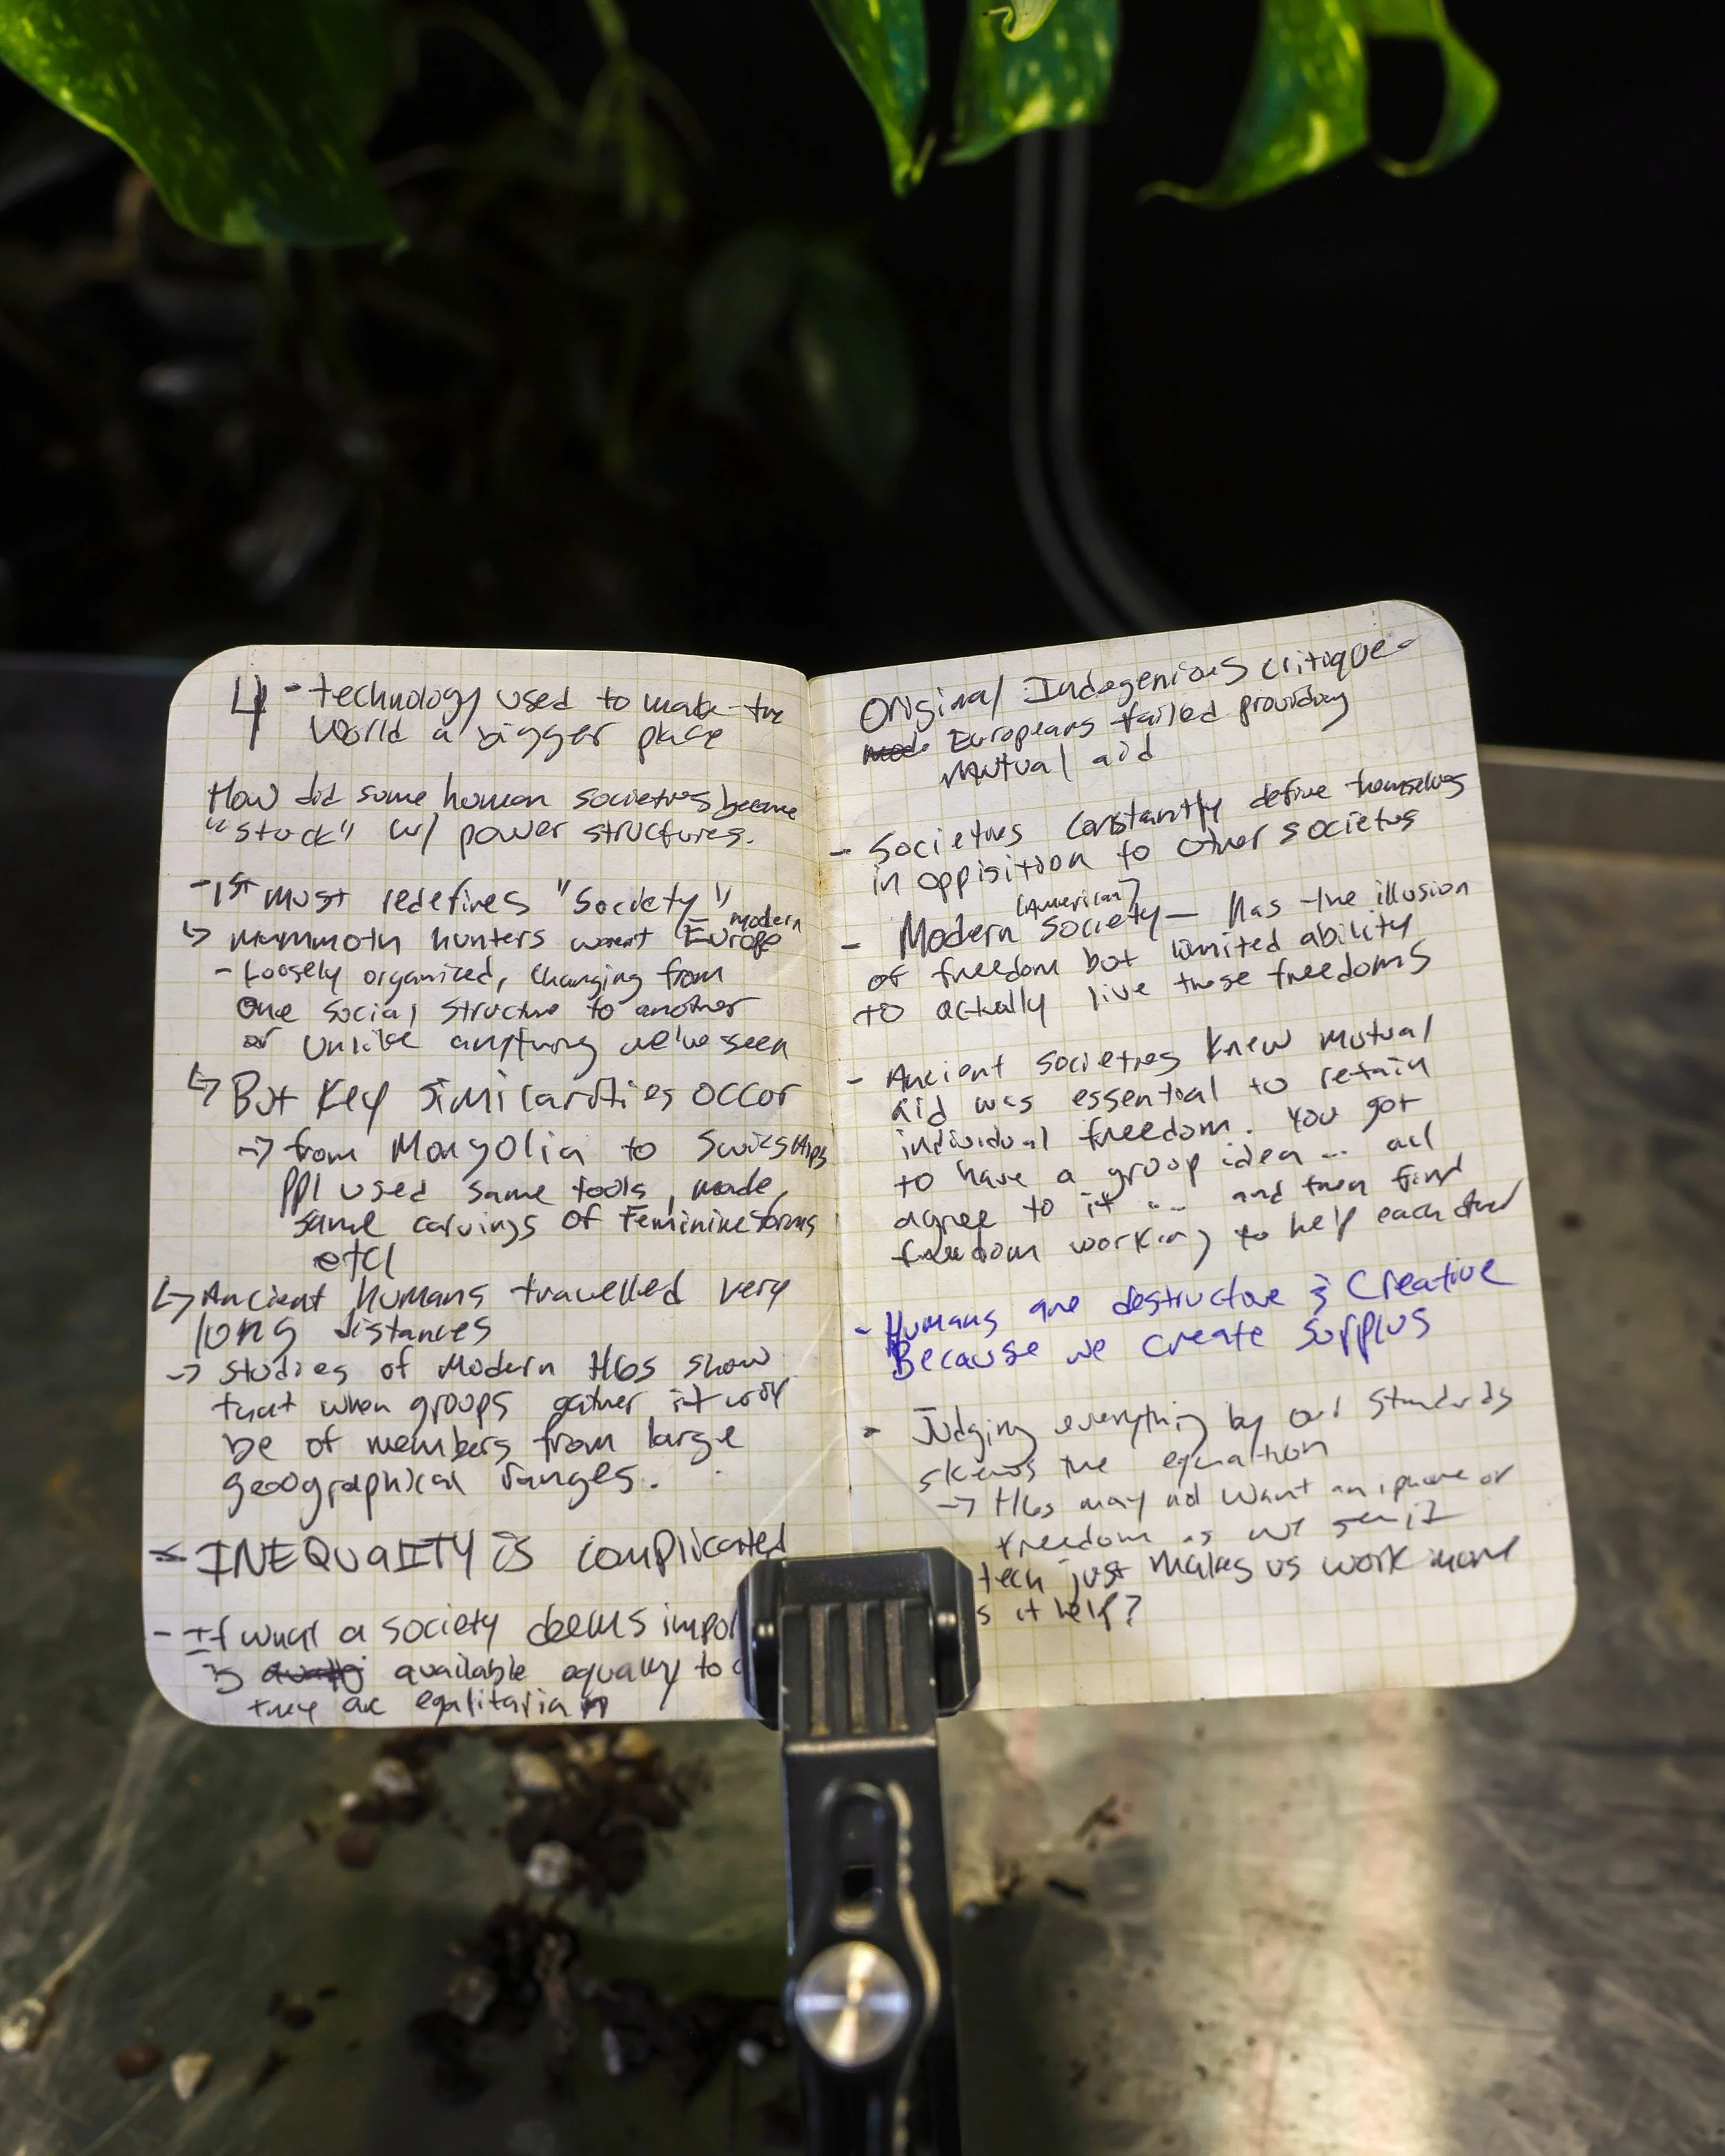 4 - technology used to make the
world a bigger place
How did some human societies become
"stuck" w/ power structures.
- 1st must redefines "Society"
↳ mammoth hunters weren't modern Europe
- Loosely organized, changing from
one social structure to another
or unlike anything we've seen
↳ But key similarities occor
→ from Mongolia to Swiss Alps
ppl used same tools, made,
same carvings of feminine forms
etc
↳ Ancient humans travelled very
long distances
→ studies of modern HGs show
that when groups gather it
be of members from large
geographical ranges.
- INEQUALITY is complicated
- If what a society deems impor
is available equally to
they are egalitarian
Original Indegenious critique -
Europeans failed providing
mutual aid
- Societies constantly define themselves
in oppisition to other societies
(American)
- Modern society — has the illusion
of freedom but limited ability
to actually live those freedoms
- Ancient societies knew mutual
aid was essential to retain
individual freedom. You got
to have a group idea ... all
agree to it ... and then find
freedom working to help each other
- Humans are destructive & Creative
Because we create surplus
- Judging everything by our standards
skews the equation
→ HGs may not want an iphone or
freedom as we see it
tech just makes us work more
s it help?